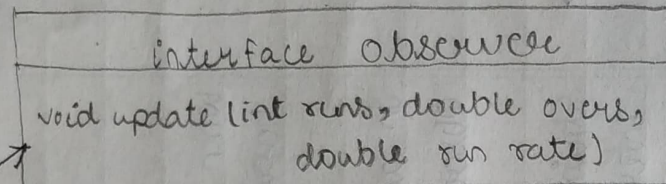 interface observer
void update (int runs, double overs,
double run rate)